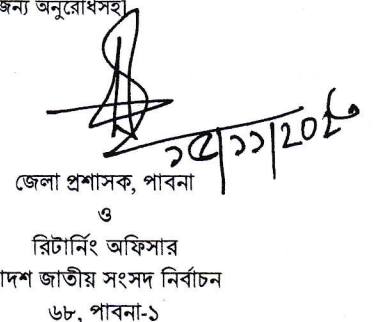 জন্য অনুরোধসহ।
জেলা প্রশাসক, পাবনা
ও
রিটার্নিং অফিসার
াদশ জাতীয় সংসদ নির্বাচন
৬৮, পাবনা-১